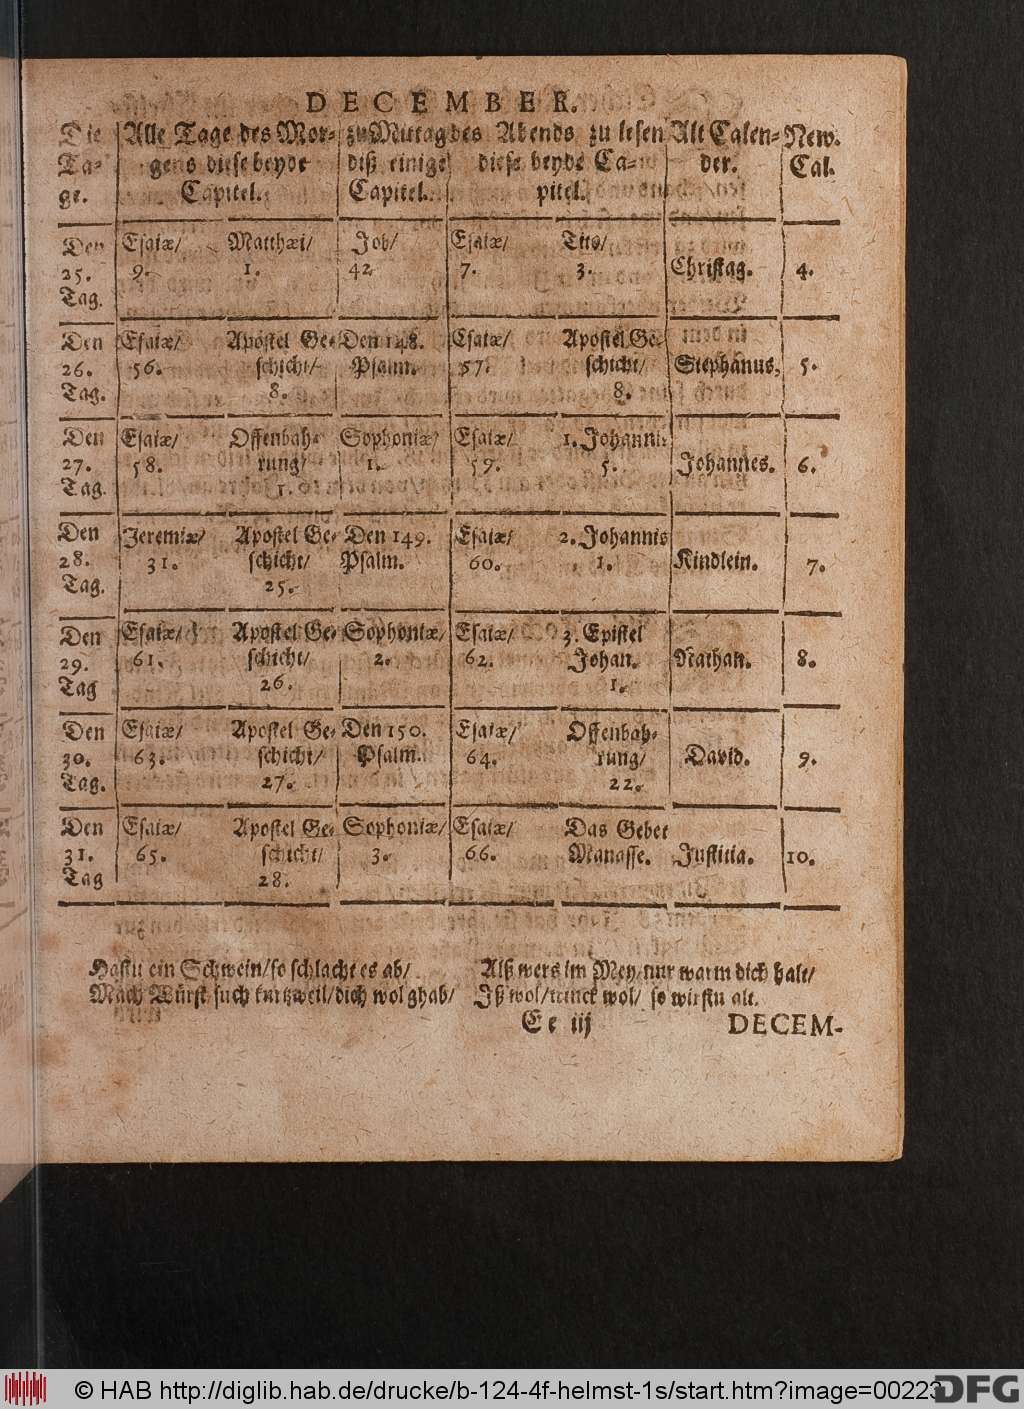 DECEMBER.
Die Alle Tage des Mor- zu Mittag des Abends zu lesen Alt Calen- New.
Ta- gens diese beyde diß einige diese beyde Ca- der. Cal.
ge. Capitel. Capitel. pitel.
Den Esaiæ/ Matthæi/ Job/ Esaiæ/ Tito/
25. 9. 1. 42 7. 3. Christag. 4.
Tag.
Den Esaiæ/ Apostel Ge- Den 148. Esaiæ/ Apostel Ge-
26. 56. schicht/ Psalm. 57. schicht/ Stephanus, 5.
Tag. 8. 8.
Den Esaiæ/ Offenbah- Sophoniæ/ Esaiæ/ 1. Johannis
27. 58. rung/ 1. 59. 5. Johannes. 6.
Tag. 1.
Den Jeremiæ/ Apostel Ge- Den 149. Esaiæ/ 2. Johannis
28. 31. schicht/ Psalm. 60. 1. Kindlein. 7.
Tag. 25.
Den Esaiæ/ Apostel Ge- Sophoniæ/ Esaiæ/ 3. Epistel
29. 61. schicht/ 2. 62. Johan. Nathan. 8.
Tag 26. 1.
Den Esaiæ/ Apostel Ge- Den 150. Esaiæ/ Offenbah-
30. 63. schicht/ Psalm. 64. rung/ David. 9.
Tag. 27. 22.
Den Esaiæ/ Apostel Ge- Sophoniæ/ Esaiæ/ Das Gebet
31. 65. schicht/ 3. 66. Manasse. Justitia. 10.
Tag 28.
Hastu ein Schwein/so schlacht es ab/ Alß wers im Mey/nur warm dich halt/
Mach Würst such kurtzweil/dich wol ghab/ Iß wol/trinck wol/ so wirstu alt.
Ee iij DECEM-
© HAB http://diglib.hab.de/drucke/b-124-4f-helmst-1s/start.htm?image=00223
DFG